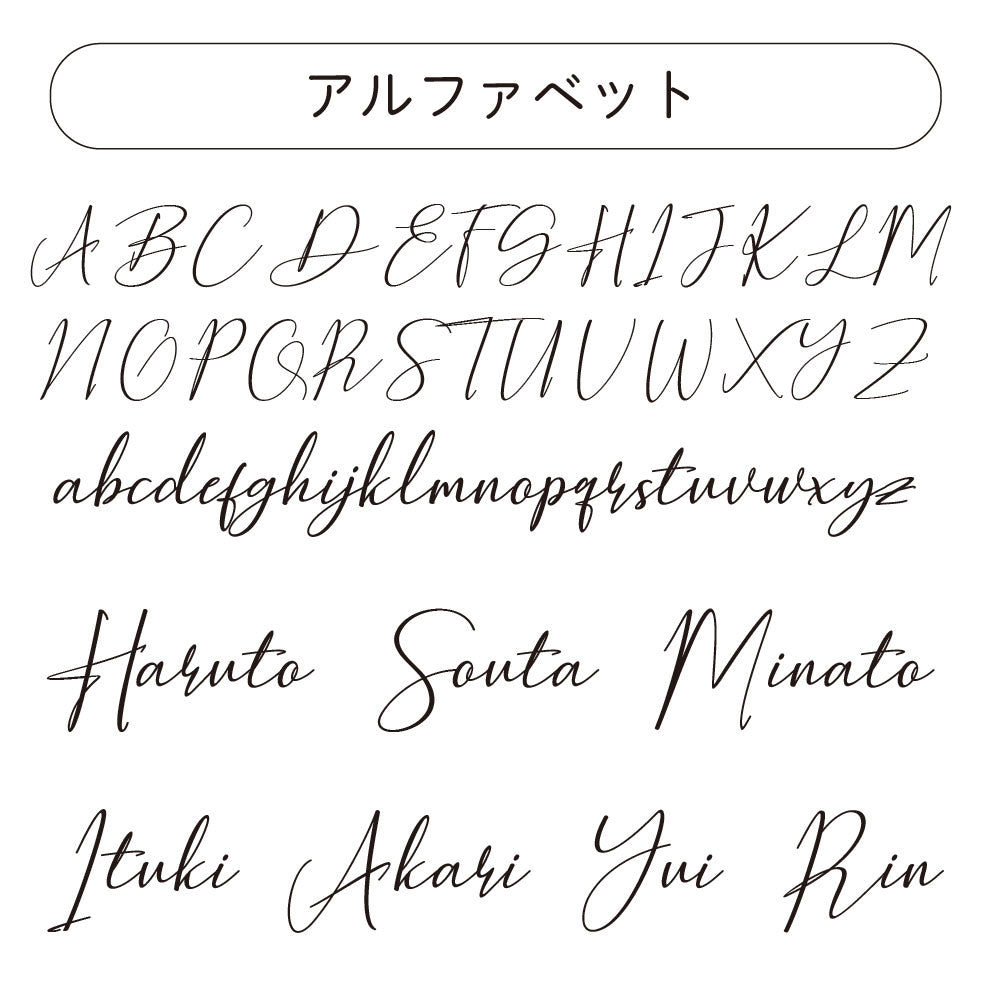 アルファベット
ABCDEFGHIJKLM
NOPQRSTUVWXYZ
abcdefghijklmnopqrstuvwxyz
Haruto Souta Minato
Ituki Akari Yui Rin